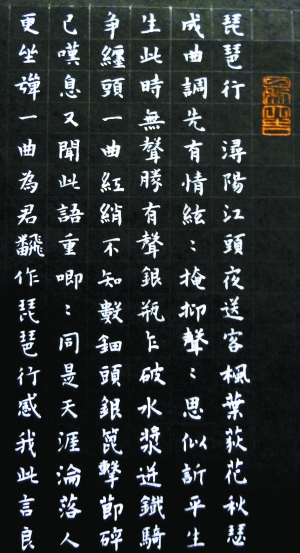 琵琶行　潯陽江頭夜送客楓葉荻花秋瑟
成曲調先有情絃:掩抑聲:思似訴平生
生此時無聲勝有聲銀瓶乍破水漿迸鐵騎
争纏頭一曲紅綃不知數鈿頭銀篦擊節碎
已嘆息又聞此語重唧:同是天涯淪落人
更坐彈一曲為君飜作琵琶行感我此言良